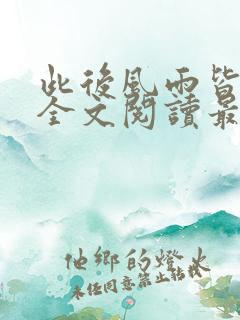 此後風雨皆
全文閱讀最
他鄉的燈火
未經同意禁止轉載